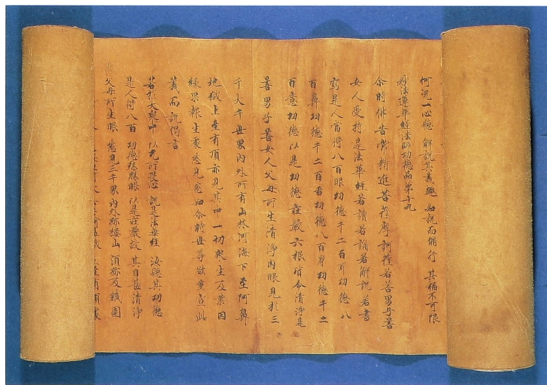 何況一心聽 解說其義趣 如說而修行 其福不可限
妙法蓮華經法師功德品第十九
尒時佛告常精進菩薩摩訶薩若善男子善
女人受持是法華經若讀若誦若解說若書
寫是人當得八百眼功德千二百耳功德八
百鼻功德千二百舌功德八百身功德千二
百意功德以是功德莊嚴六根皆令清淨是
善男子善女人父母所生清淨肉眼見於三
千大千世界內外所有山林河海下至阿鼻
地獄上至有頂亦見其中一切眾生及業因
緣果報生處悉見悉知尒時世尊欲重宣此
義而說偈言
若於大眾中 以无所畏心 說是法華經 汝聽其功德
是人得八百 功德殊勝眼 以是莊嚴故 其目甚清淨
父母所生眼 悉見三千界 內外彌樓山 須彌及鐵圍